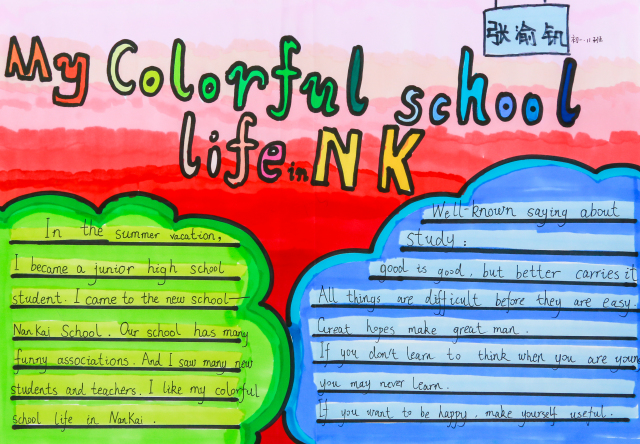 张渝钒
My Colorful school
life in NK
In the summer vacation,
I became a junior high school
student. I came to the new school—
NanKai School. Our school has many
funny associations. And I saw many new
students and teachers. I like my colorful
school life in NanKai.
Well-known saying about
study:
good is good, but better carries it
All things are difficult before they are easy.
Great hopes make great man.
If you don't learn to think when you are young
you may never learn.
If you want to be happy, make yourself useful.